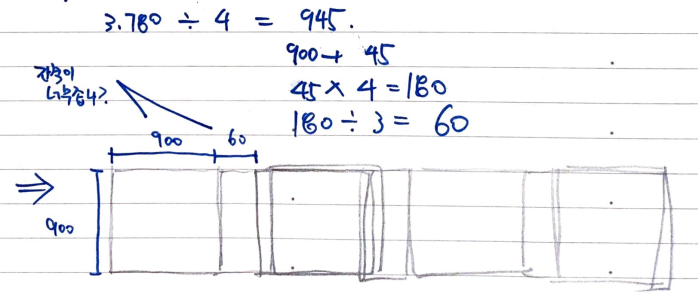 3.780 ÷ 4 = 945.
900 + 45
45 × 4 = 180
180 ÷ 3 = 60
900 60
⇒
900